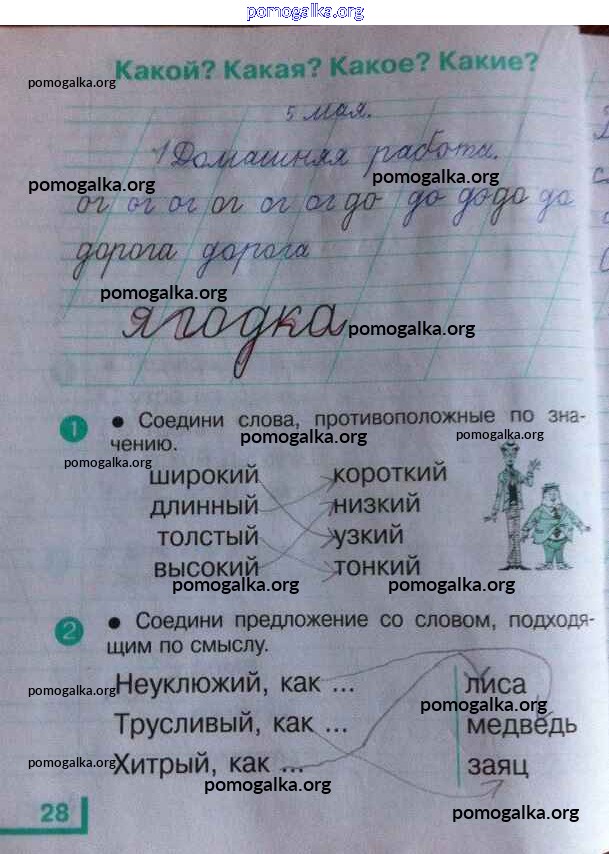 pomogalka.org
Какой? Какая? Какое? Какие?
pomogalka.org
5 мая.
Домашняя работа.
pomogalka.org pomogalka.org
ог ог ог ог ог ог до до до до до
дорога дорога
pomogalka.org
ягодка pomogalka.org
1 • Соедини слова, противоположные по зна-
чению.
pomogalka.org pomogalka.org
pomogalka.org
широкий короткий
длинный низкий
толстый узкий
высокий тонкий
pomogalka.org pomogalka.org
2 • Соедини предложение со словом, подходя-
щим по смыслу.
Неуклюжий, как ... лиса
pomogalka.org pomogalka.org
Трусливый, как ... медведь
Хитрый, как ... заяц
pomogalka.org
pomogalka.org
28 pomogalka.org